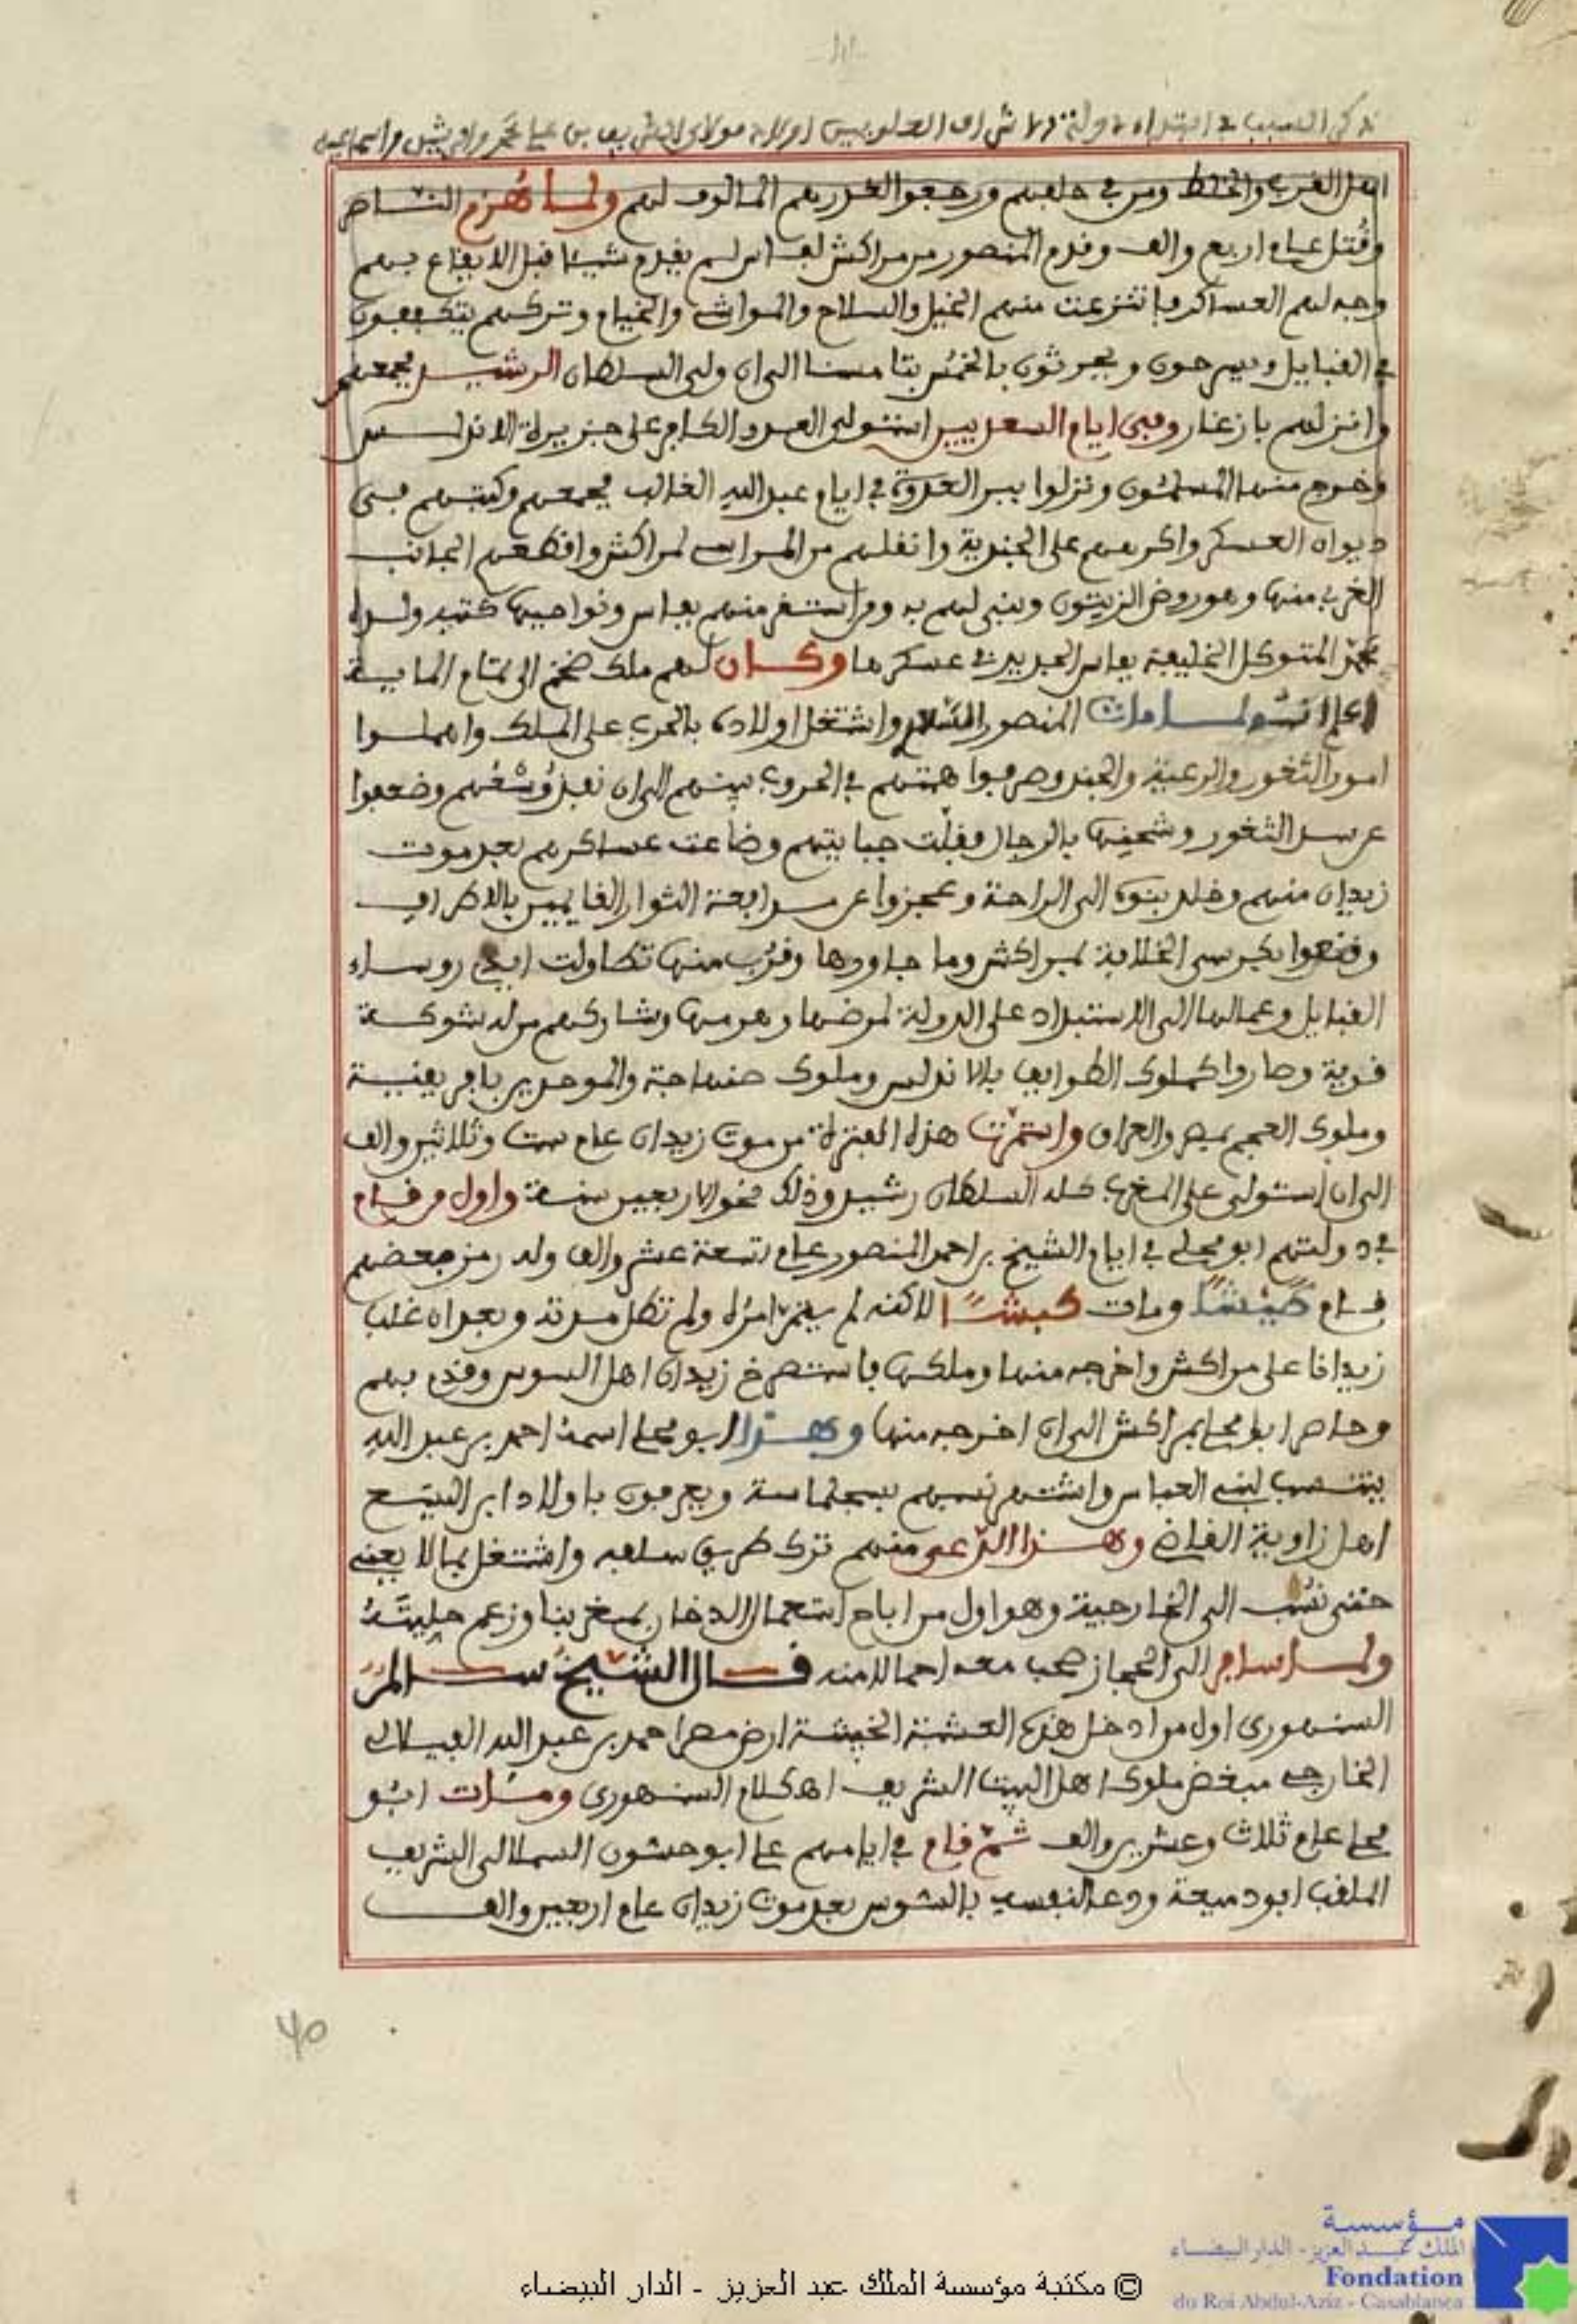 اهل الغرب والخلط ومن في حلفهم ورجعوا لغدرهم المالوف لهم ولما هزم الناصر
وقُتل عام اربع والف وقدم المنصور من مراكش لفاس لم يقدم شيئا قبل الايقاع بهم
وجه لهم العساكر فانتزعت منهم الخيل والسلاح والمواشي والخيام وتركهم يتكففون
في القبايل ويسرحون ويحرثون بالخمُس بتامسنا الى ان ولي السلطان الرشيد فجمعهم
وانزلهم بازغار وفي ايام السعديين استولى العدو الكافر على جزيرة الاندلس
وخرج منها المسلمون ونزلوا ببر العدوة في ايام عبد الله الغالب فجمعهم وكتبهم في
ديوان العسكر واكرمهم على الجندية وانقلهم من المراسي لمراكش واقطعهم الجانب
الغربي منها وهو روض الزيتون وبنى لهم به ومن استقر منهم بفاس ونواحيها كتبه ولده
محمد المتوكل الخليفة بفاس الجديد في عسكرها وكان لهم ملك ضخم الى تمام الماية
اعلم انه لما مات المنصور واشتغل اولاده بالحرب على الملك واهملوا
امور الثغور والرعية والجند وصرفوا همتهم في الحروب بينهم الى ان نفد وسعهم وضعفوا
عن سد الثغور وشحنها بالرجال وقلّت جبايتهم وضاعت عساكرهم بعد موت
زيدان منهم وخلد بنوه الى الراحة وعجزوا عن مدافعة الثوار القايمين بالاطراف
وقنعوا بكرسي الخلافة بمراكش وما جاورها وقرُب منها تطاولت ايدي روساء
القبايل وعمالها الى الاستبداد على الدولة لمرضها وهرمها وشاركهم من له شوكة
قوية وصاروا كملوك الطوايف بالاندلس وملوك صنهاجة والموحدين بافريقية
وملوك العجم بمصر والعراق واستمرت هذه الفترة من موت زيدان عام ست وثلاثين والف
الى ان استولى على المغرب كله السلطان رشيد وذلك نحو الاربعين سنة واول من قام
في دولتهم ابو محلي في ايام الشيخ بن احمد المنصور عام تسعة عشر والف وله رمز بعضهم
قام طيشًا ومات كبشًا لاكنه لم يتم امره ولم تطل مدته وبعد ان غلب
زيدانا على مراكش واخرجه منها وملكها فاستصرخ زيدان اهل السوس وقدم بهم
وحاصر ابو محلي بمراكش الى ان اخرجه منها وهذا ابو محلي اسمه احمد بن عبد الله
ينتسب لبني العباس واشتهر نسبهم بسجلماسة ويعرفون باولاد ابن اليسع
اهل زاوية القاضي وهذا الدّعي منهم ترك طريق سلفه واشتغل بما لا يعني
حتى نسب الى الخارجية وهو اول من اباح استعمال الدخان بمغربنا وزعم حليته
ولما سافر الى الحجاز صحب معه احمالا منه قال الشيخ سالم
السنهوري اول من ادخل هذه العشبة الخبيثة ارض مصر احمد بن عبد الله الفيلالي
الخارجي مبغض ملوك اهل البيت الشريف اه كلام السنهوري ومات ابو
محلي عام ثلاث وعشرين والف ثم قام في ايامهم علي ابو حسون السملالي الشريف
الملقب ابو دميعة ودعا لنفسه بالسوس بعد موت زيدان عام اربعين والف
40
© مكتبة مؤسسة الملك عبد العزيز - الدار البيضاء
مؤسسة
الملك عبد العزيز - الدار البيضاء
Fondation
du Roi Abdul-Aziz - Casablanca